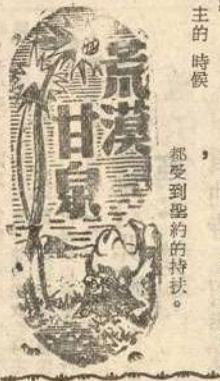 主的 時候
，
都受到聖約的持扶。
荒漠
甘泉